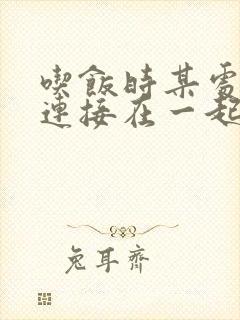 喫飯時某處
連接在一起
兔耳齊